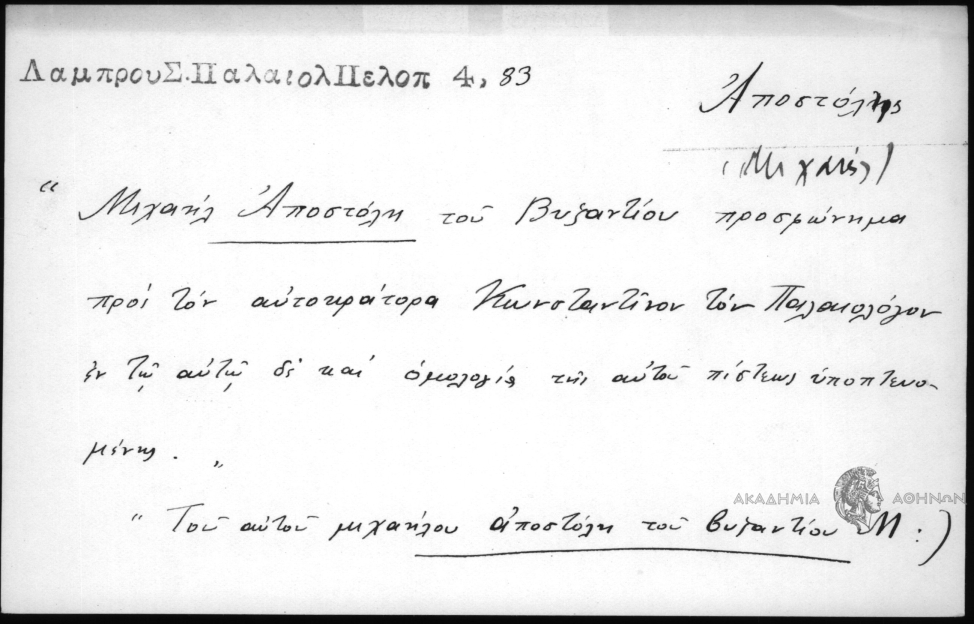 ΛαμπρουΣ.ΠαλαιολΠελοπ 4, 83
Ἀποστόλης
(Μιχαήλ)
“ Μιχαήλ Ἀποστόλη τοῦ Βυζαντίου προσφώνημα
πρὸς τὸν αὐτοκράτορα Κωνσταντῖνον τὸν Παλαιολόγον
ἐν τῷ αὐτῷ δὲ καὶ ὁμολογία τῆς αὐτοῦ πίστεως ὑποπτευο-
μένης . „
“ Τοῦ αὐτοῦ μιχαήλου ἀποστόλη τοῦ βυζαντίου Μ : )
ΑΚΑΔΗΜΙΑ ΑΘΗΝΩΝ